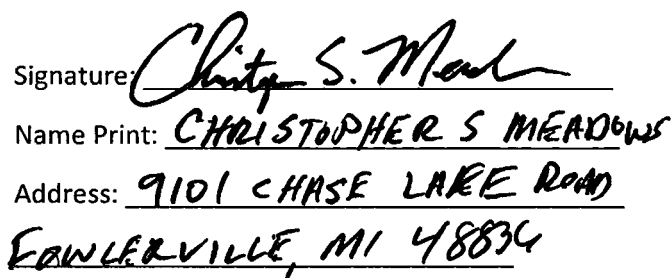 Signature: Christopher S. Meadows
Name Print: CHRISTOPHER S MEADOWS
Address: 9101 CHASE LAKE ROAD
FOWLERVILLE, MI 48836